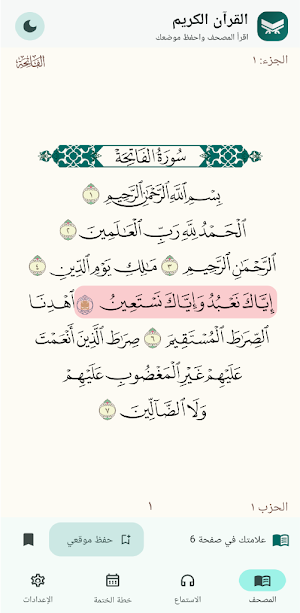 القرآن الكريم
اقرأ المصحف واحفظ موضعك
الجزء: ١
الفَاتِحَة
سُورَةُ الفَاتِحَةِ
بِسۡمِ ٱللَّهِ ٱلرَّحۡمَٰنِ ٱلرَّحِيمِ ١
ٱلۡحَمۡدُ لِلَّهِ رَبِّ ٱلۡعَٰلَمِينَ ٢
ٱلرَّحۡمَٰنِ ٱلرَّحِيمِ ٣ مَٰلِكِ يَوۡمِ ٱلدِّينِ ٤
إِيَّاكَ نَعۡبُدُ وَإِيَّاكَ نَسۡتَعِينُ ٥ ٱهۡدِنَا
ٱلصِّرَٰطَ ٱلۡمُسۡتَقِيمَ ٦ صِرَٰطَ ٱلَّذِينَ أَنۡعَمۡتَ
عَلَيۡهِمۡ غَيۡرِ ٱلۡمَغۡضُوبِ عَلَيۡهِمۡ
وَلَا ٱلضَّآلِّينَ ٧
الحزب ١
١
علامتك في صفحة 6
حفظ موقعي
المصحف
الاستماع
خطة الختمة
الإعدادات